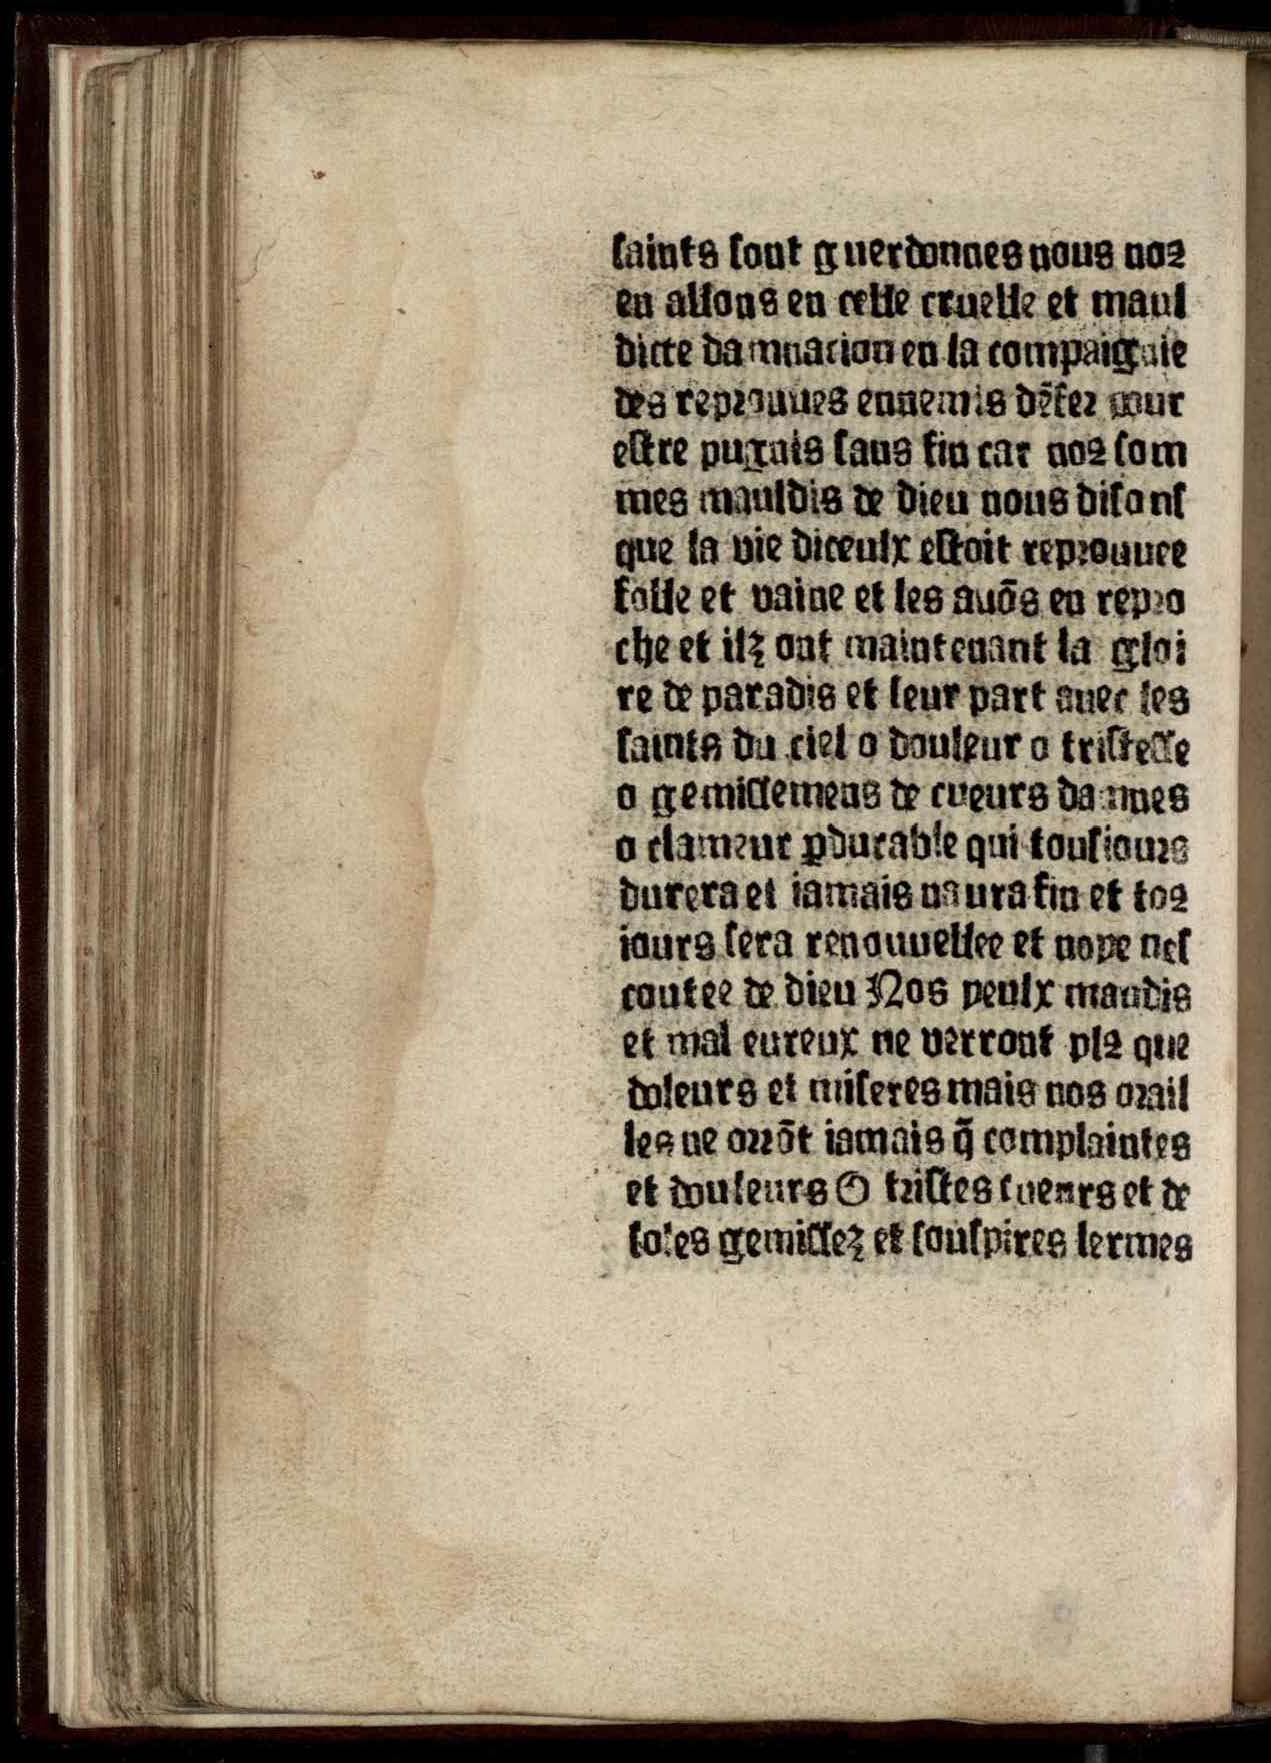 saints sont guerdonnes nous noꝰ
en allons en celle cruelle et maul
dicte damnacion en la compaignie
des reprouues ennemis dẽfer pour
estre pugnis sans fin car noꝰ som
mes mauldis de dieu nous disons
que la vie diceulx estoit reprouuee
folle et vaine et les auõs en repro
che et ilz ont maintenant la gloi
re de paradis et leur part auec les
saints du ciel o douleur o tristesse
o gemissemens de cueurs dannes
o clameur ꝑdurable qui tousiours
durera et iamais naura fin et toꝰ
iours sera renouuellee et noye nes
coutee de dieu Nos yeulx maudis
et mal eureux ne verront plꝰ que
doleurs et miseres mais nos orail
les ne orrõt iamais q̃ complaintes
et douleurs O tristes cueurs et de
soles gemissez et souspires lermes